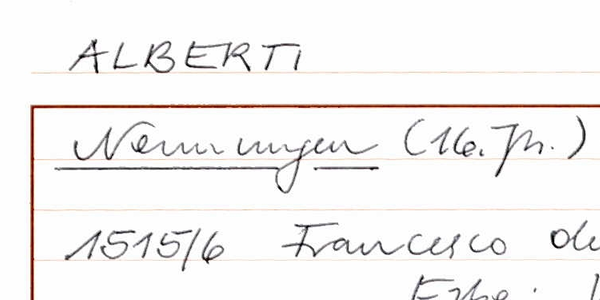 ALBERTI
Nennungen (16. Jh.)
1515/6 Francesco
Erbe: